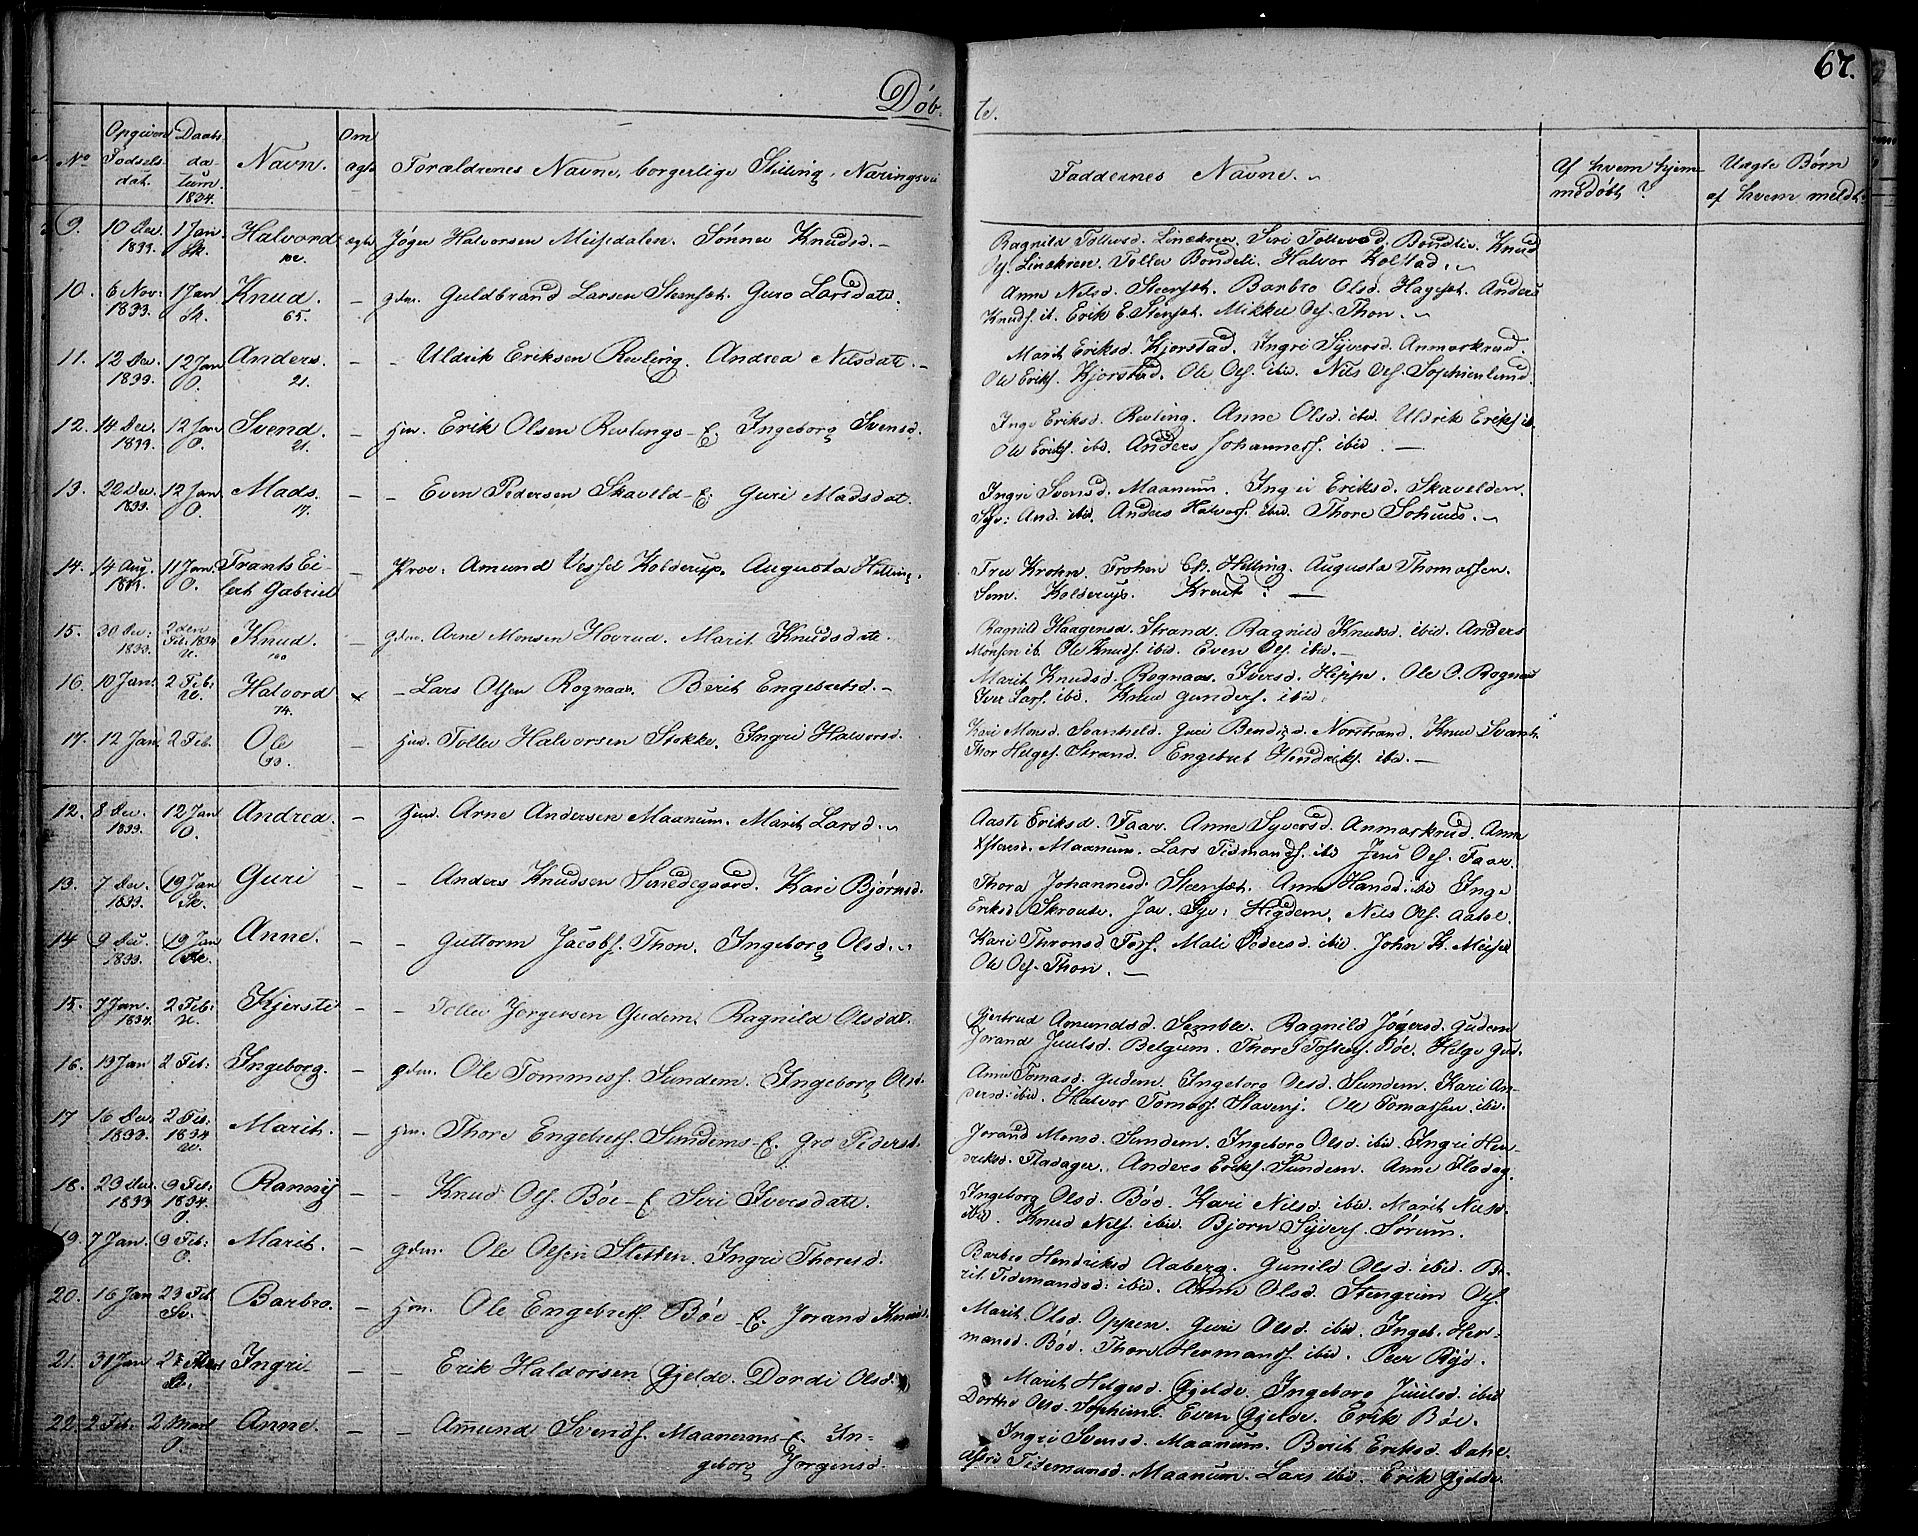 67.
Døb
te.
No
Opgiven Fødsels dat.
Daabs da- tum. 1834.
Navn.
Om ægte
Forældrenes Navne, borgerlige Stilling, Næringsvei
Faddernes Navne.
Af hvem hjem- medøbt?
Uægte Børn af hvem meldt
9. 10 Dec. 1833. 1 Jan Sk. Halvord. ægte Jøger Halvorsen Sønnev Knudsd.
Ragnild Tollevsd. Linekren. Siri Tollevsd. Bondlie. Knud
Ols. Linekren. Tollev Bondeli. Halvor Kolstad.
10. 6 Nov: 1833. 1 Jan Sk. Knud. 65. — gdm. Guldbrand Larsen Steensæt. Guro Larsdatt.
Anne Nilsd. Steensæt. Barbro Olsd. Hagesæt. Anders
Knuds. ib. Erik E. Stensæt. Mikkel Ols. Thon.
11. 12 Dec 1833. 12 Jan O. Anders. 21. — - Uldrik Eriksen Revling. Andrea Nilsdatt.
Marit Eriksd. Kjorstad. Ingri Syversd. Anmarkrud.
Ole Eriks. Kjorstad. Ole Ols. ibid. Nils Ols. Sophienlund.
12. 14 Dec. 1833. 12 Jan O. Svend. 21. — Hm. Erik Olsen Revlings-E. Ingeborg Svensd.
Inge Eriksd. Revling. Anne Olsd. ibid. Uldrik Eriks ib.
Ole Eriks. ibd. Anders Johanness. ibid.
13. 22 Dec. 1833. 12 Jan O. Mads. 17. — - Even Pedersen Skaveld-E. Guri Madsdat.
Ingri Svensd. Maanum. Ingri Eriksd. Skavelden.
Syv: And. ibid. Anders Halvors. ibid. Thore
14. 14 Aug. 11 Jan. O. Frants Ei- — Proc. Amund Vessel Kolderup. Augusta Helling.
lert Gabriel
Fru Krohn. Frøken Ch. Helling. Augusta Thomassen.
Sem. Kolderup.
15. 30 Dec: 1833. 2den Feb: 1834 U. Knud. 100 — gdm. Arne Monsen Hovrud. Marit Knudsdatt.
Ragnild Haagensd. Strand. Ragnild Knudsd. ibid. Anders
Monsen ib. Ole Knuds. ibid. Even Ols. ibid.
16. 10 Jan. 2 Feb: U. Halvord 74. x - Lars Olsen Rognaas. Berit Engebretsd.
Marit Knudsd. Rognaas. Iversd. Heppe. Ole O. Rognaas
Iver Lars. ibd. Knud Gunders. ibid.
17. 12 Jan 2 Feb. Ole 99. — Hm. Tollev Halvorsen Stokke. Ingri Halvorsd.
Kari Monsd. Svanheld. Guri Bendigsd. Norstrand. Knud Svanh.
Thor Helges. Strand. Engebret Hendriks. ibid.
12. 8 Dec. 1833. 12 Jan O. Andrea. — Hm. Arne Andersen Maanum. Marit Larsd.
Aaste Eriksd. Faar. Anne Syversd. Anmarkrud. Anne
Maanum. Lars Tidmands. ibd Jens Ols. Faar.
13. 7 Dec. 1833. 19 Jan Sk. Guri — - Anders Knudsen Smedegaard. Kari Bjørnsd.
Thora Johannesd. Steensæt. Anne Hansd. ibid Inge
Eriksd. Skroute. Syv: Higdem. Nils Ols.
14 9 Dec. 1833. 19 Jan Sk. Anne. — - Guttorm Jacobs. Thon. Ingeborg Olsd.
Kari Thronsd. Foss. Mali Pedersd. ibid. John K.
Ole Ols. Thon.
15. 7 Jan. 1834. 2 Feb: U. Kjersti — - Tollev Jørgersen Gudem. Ragnild Olsdat.
Gjertrud Amundsd. Semble. Ragnild Jøgersd. Gudem
Jorand Juulsd. Belgum. Thore Tostens. Bøe. Helge Gud.
16. 13 Jan 2 Feb: Ingeborg. — gdm. Ole Tommess. Sundem. Ingeborg Olsd.
Anne Tomasd. Gudem. Ingeborg Olsd. Sundem. Kari An-
dersd. ibid. Halvor Tomass. Stavenj. Ole Tomassen. ibid.
17 16 Dec. 1833. 2 Feb: 1834 U. Marit. — Hm. Thore Engebrets. Sundems-E. Gro Pedersd.
Jorand Monsd. Sundem. Ingeborg Olsd. ibid. Ingri Hen-
driksd. Fladager. Anders Eriks. Sundem. Anne Fladag.
18. 23 Dec. 1833 9 Feb: 1834. O. Rannig — - Knud Ols. Bøe-E Siri Iversdatt.
Ingeborg Olsd. Bøe. Kari Nilsd. ibid. Marit Nilsd.
ibid. Knud Nils. ibid. Bjørn Syvers. Sørum.
19. 7 Jan. 9 Feb: O. Marit. — gdm. Ole Olsen Stetten. Ingri Thoresd.
Barbro Hendriksd Aaberg. Gunild Olsd. ibid. Be-
rit Tidemandsd. ibid. Anne Olsd. Stengrim Ols.
20. 16 Jan 23 Feb Sv. Barbro. — Hm. Ole Engebrets. Bøe-E. Jorand Knuds.
Marit Olsd. Oppen. Guri Olsd. ibid. Ingeb. Her-
mansd. Bøe. Thore Hermands. ibid. Peer Ryd.
21. 31 Jan Ingri — - Erik Haldorsen Gjelde. Dordi Olsd.
Marit Helgesd. Gjelde. Ingeborg Juulsd. ibid
Dorthe Olsd. Sophienl. Even Gjelde. Erik Bøe.
22. 2 Feb: 2 Mart O. Anne. — - Amund Svends. Maanems-E. In-
geborg Jørgensd.
Ingri Svensd. Maanum. Berit Eriksd. Dahl.
Tidemansd. Maanum. Lars ibid. Erik Gjelde.